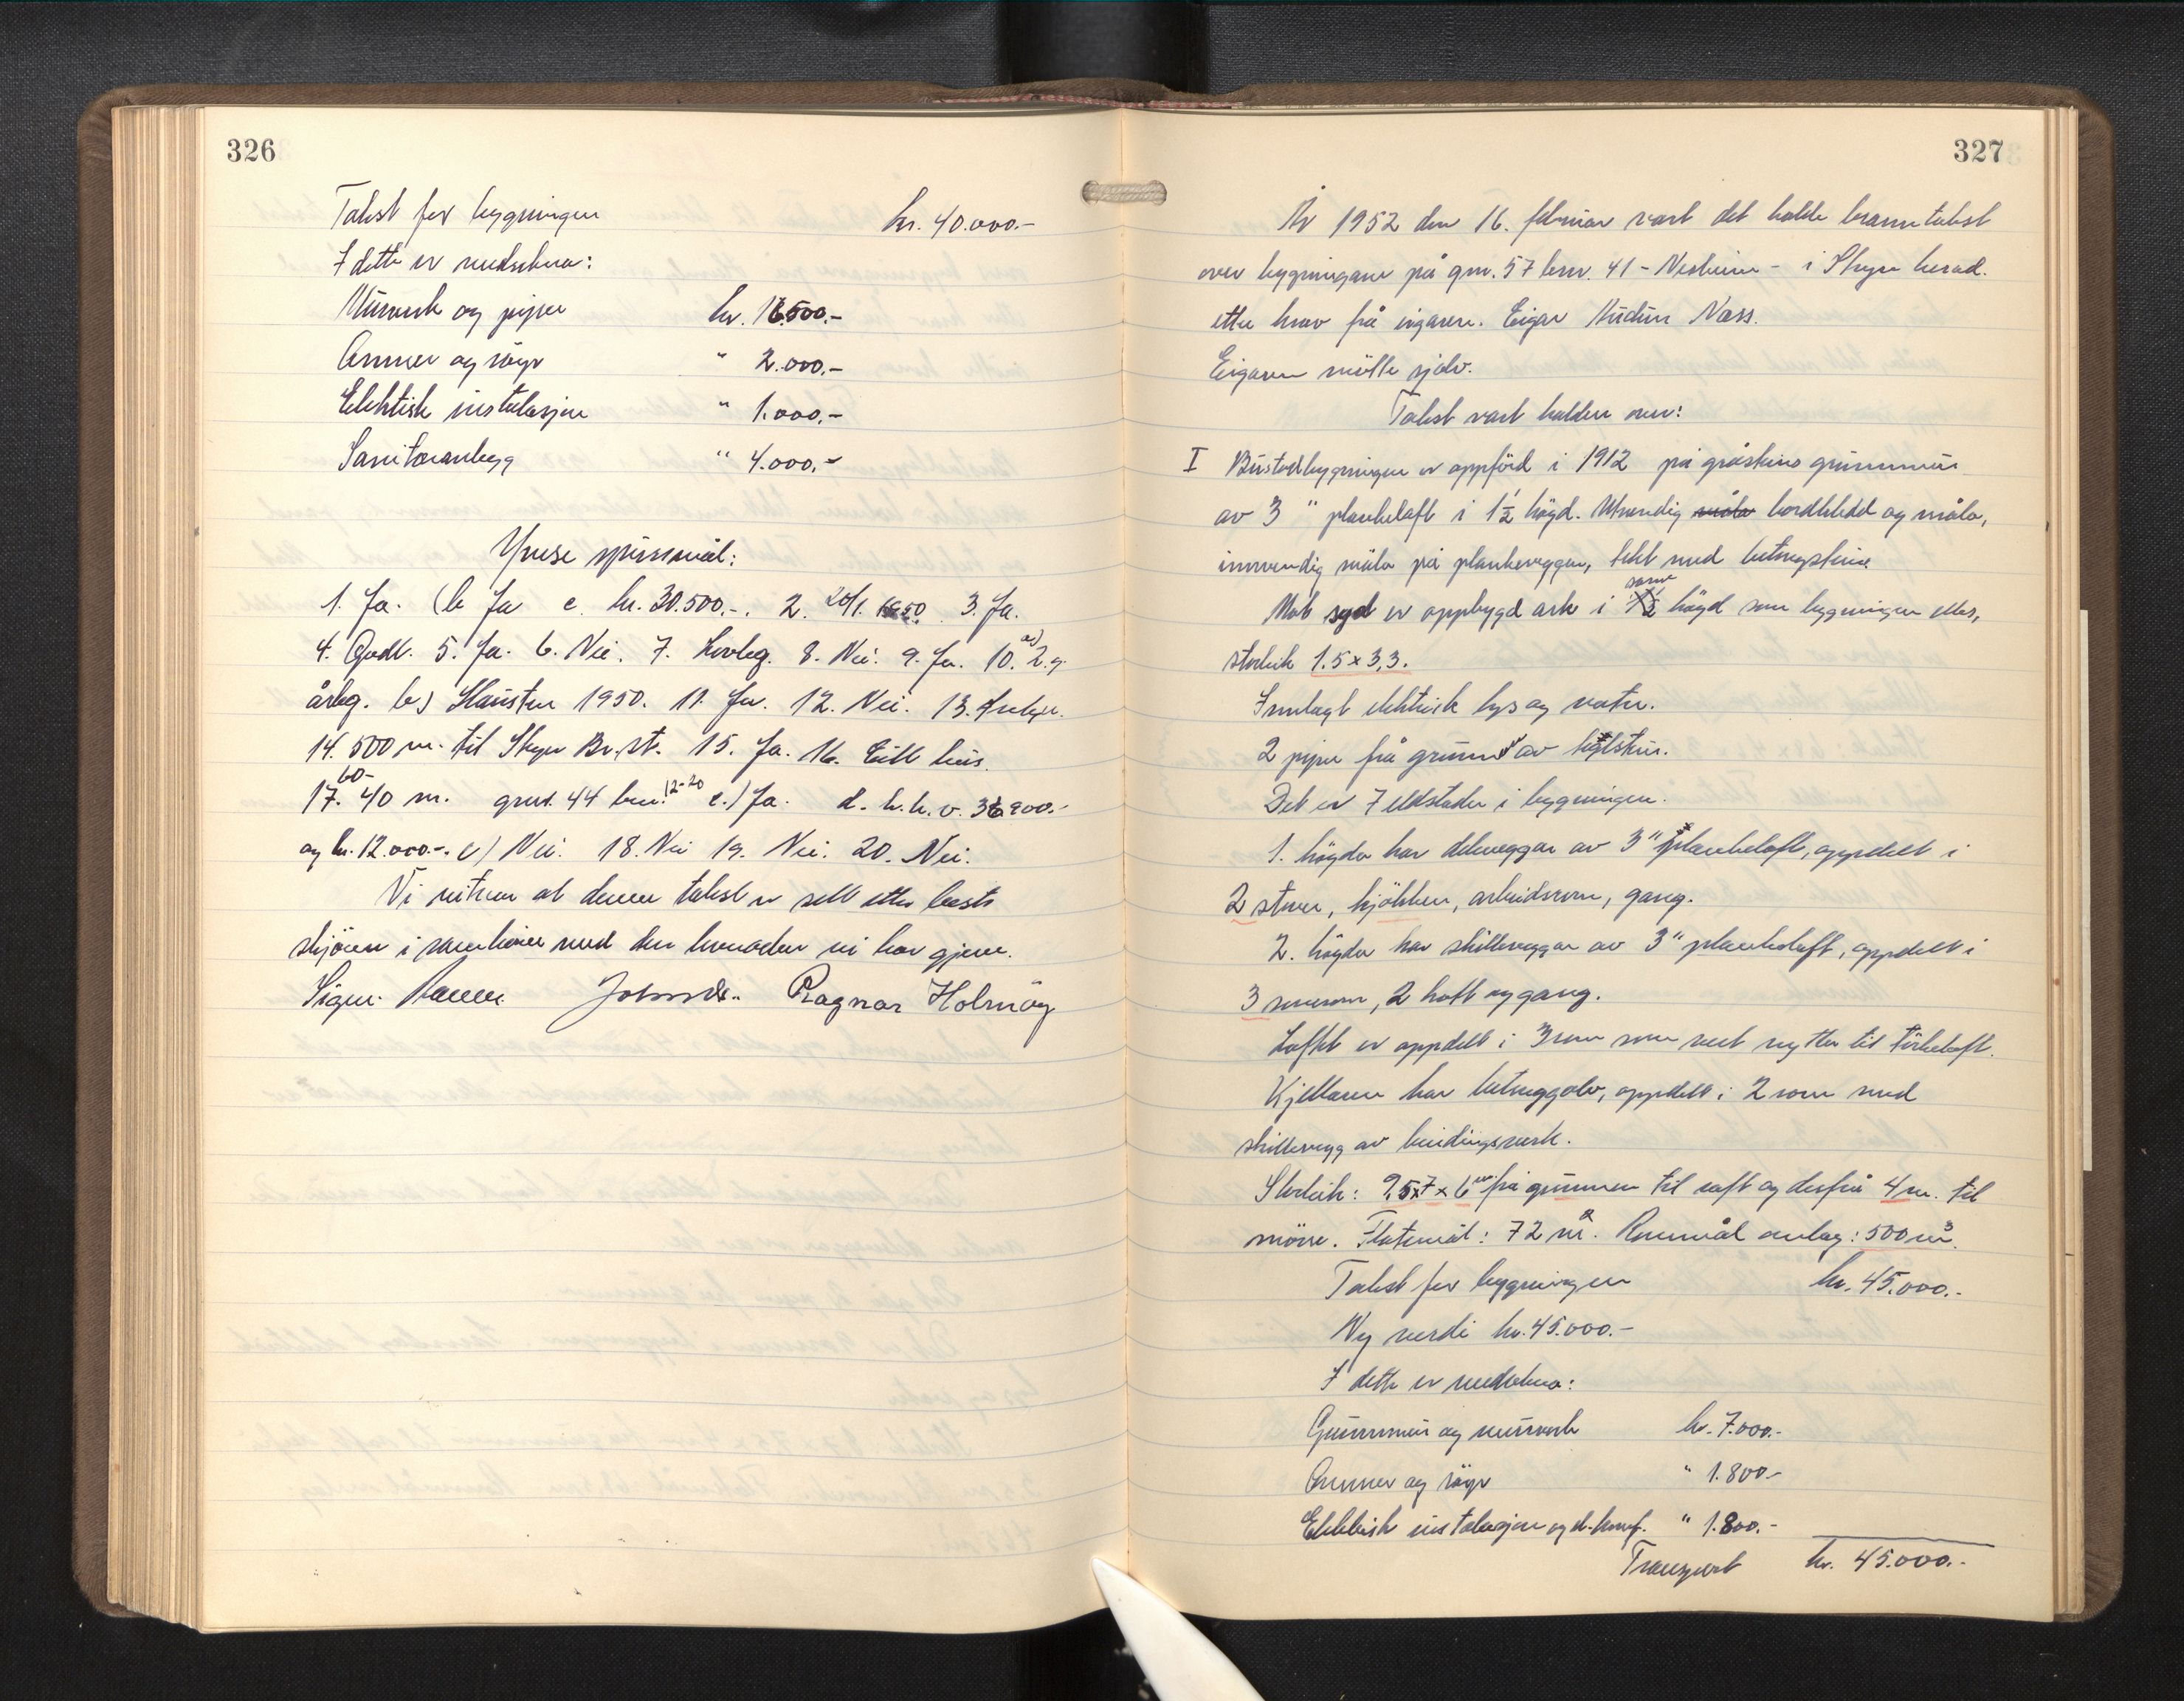 326
Takst for bygningen kr. 40.000.-
I dette er medrekna:
Murverk og piper kr. 16.500.-
Omner og røyr " 2.000.-
Elektisk instalasjon " 1.000.-
Sanitæranlegg " 4.000.-
Ymse spursmål:
1. Ja. (b Ja c. kr. 30.500.-. 2. 1950. 3. Ja.
4. Godt. 5. Ja. 6. Nei. 7. Lovleg. 8. Nei. 9. Ja. 10. a) 2 g.
årleg. b) Hausten 1950. 11. Ja. 12. Nei. 13.
14. 500 m. til Stryn Br.st. 15. Ja. 16. Eitt hus.
17. 40 m. 60- grus. 44 bnr. 12-20 c.) Ja. d. h.h.v. 36900.-
og kr. 12.000.-. e) Nei. 18. Nei 19. Nei. 20. Nei.
Vi vitnar at denne takst er sett etter beste
skjøn i samhøve med den lovnaden vi har gjeve.
Ragnar Holmöy
327
År 1952 den 16. februar vart det halde branntakst
over bygningane på gnr. 57 bnr. 41 - Nesheim - i Stryn herad.
etter krav frå eigaren. Eigar Audun Næss.
Eigaren møtte sjølv.
Takst vart halden over:
I Bustadbygningen er oppförd i 1912 på gråsteins grunnmur
av 3 " plankelaft i 1½ högd. Utvendig måla bordkledd og måla,
innvendig måla på plankeveggar, tekt med betongsteine
Mot syd er oppbygd ark i 1½ same högd som bygningen elles,
storleik 1.5 x 3,3.
Innlagt elektrisk lys og vatn.
2 piper frå grunn av teglstein.
Det er 7 eldstader i bygningen.
1. högda har deleveggar av 3" plankelaft, oppdelt i
2 stover, kjökken, arbeidsrom, gang.
2. högda har skilleveggar av 3" plankelaft, oppdelt i
3 soverom, 2 kott og gang.
Loftet er oppdelt i 3 rom som vert nytta til törkeloft.
Kjellaren har betonggolv, oppdelt i 2 rom med
skillevegg av bindingsverk.
Storleik: 9,5x7 x 6 m frå grunnen til raft og derfrå 4 m. til
möne. Flatemål: 72 m². Rommål omlag: 500 m³.
Takst for bygningen kr. 45.000.-
Ny verdi kr. 45.000.-
I dette er medrekna:
Grunnmur og murverk kr. 7.000.-
Omner og röyr " 1.800-
Elektrisk instalasjon og el. komf. " 1.800.-
Transport kr. 45.000.-